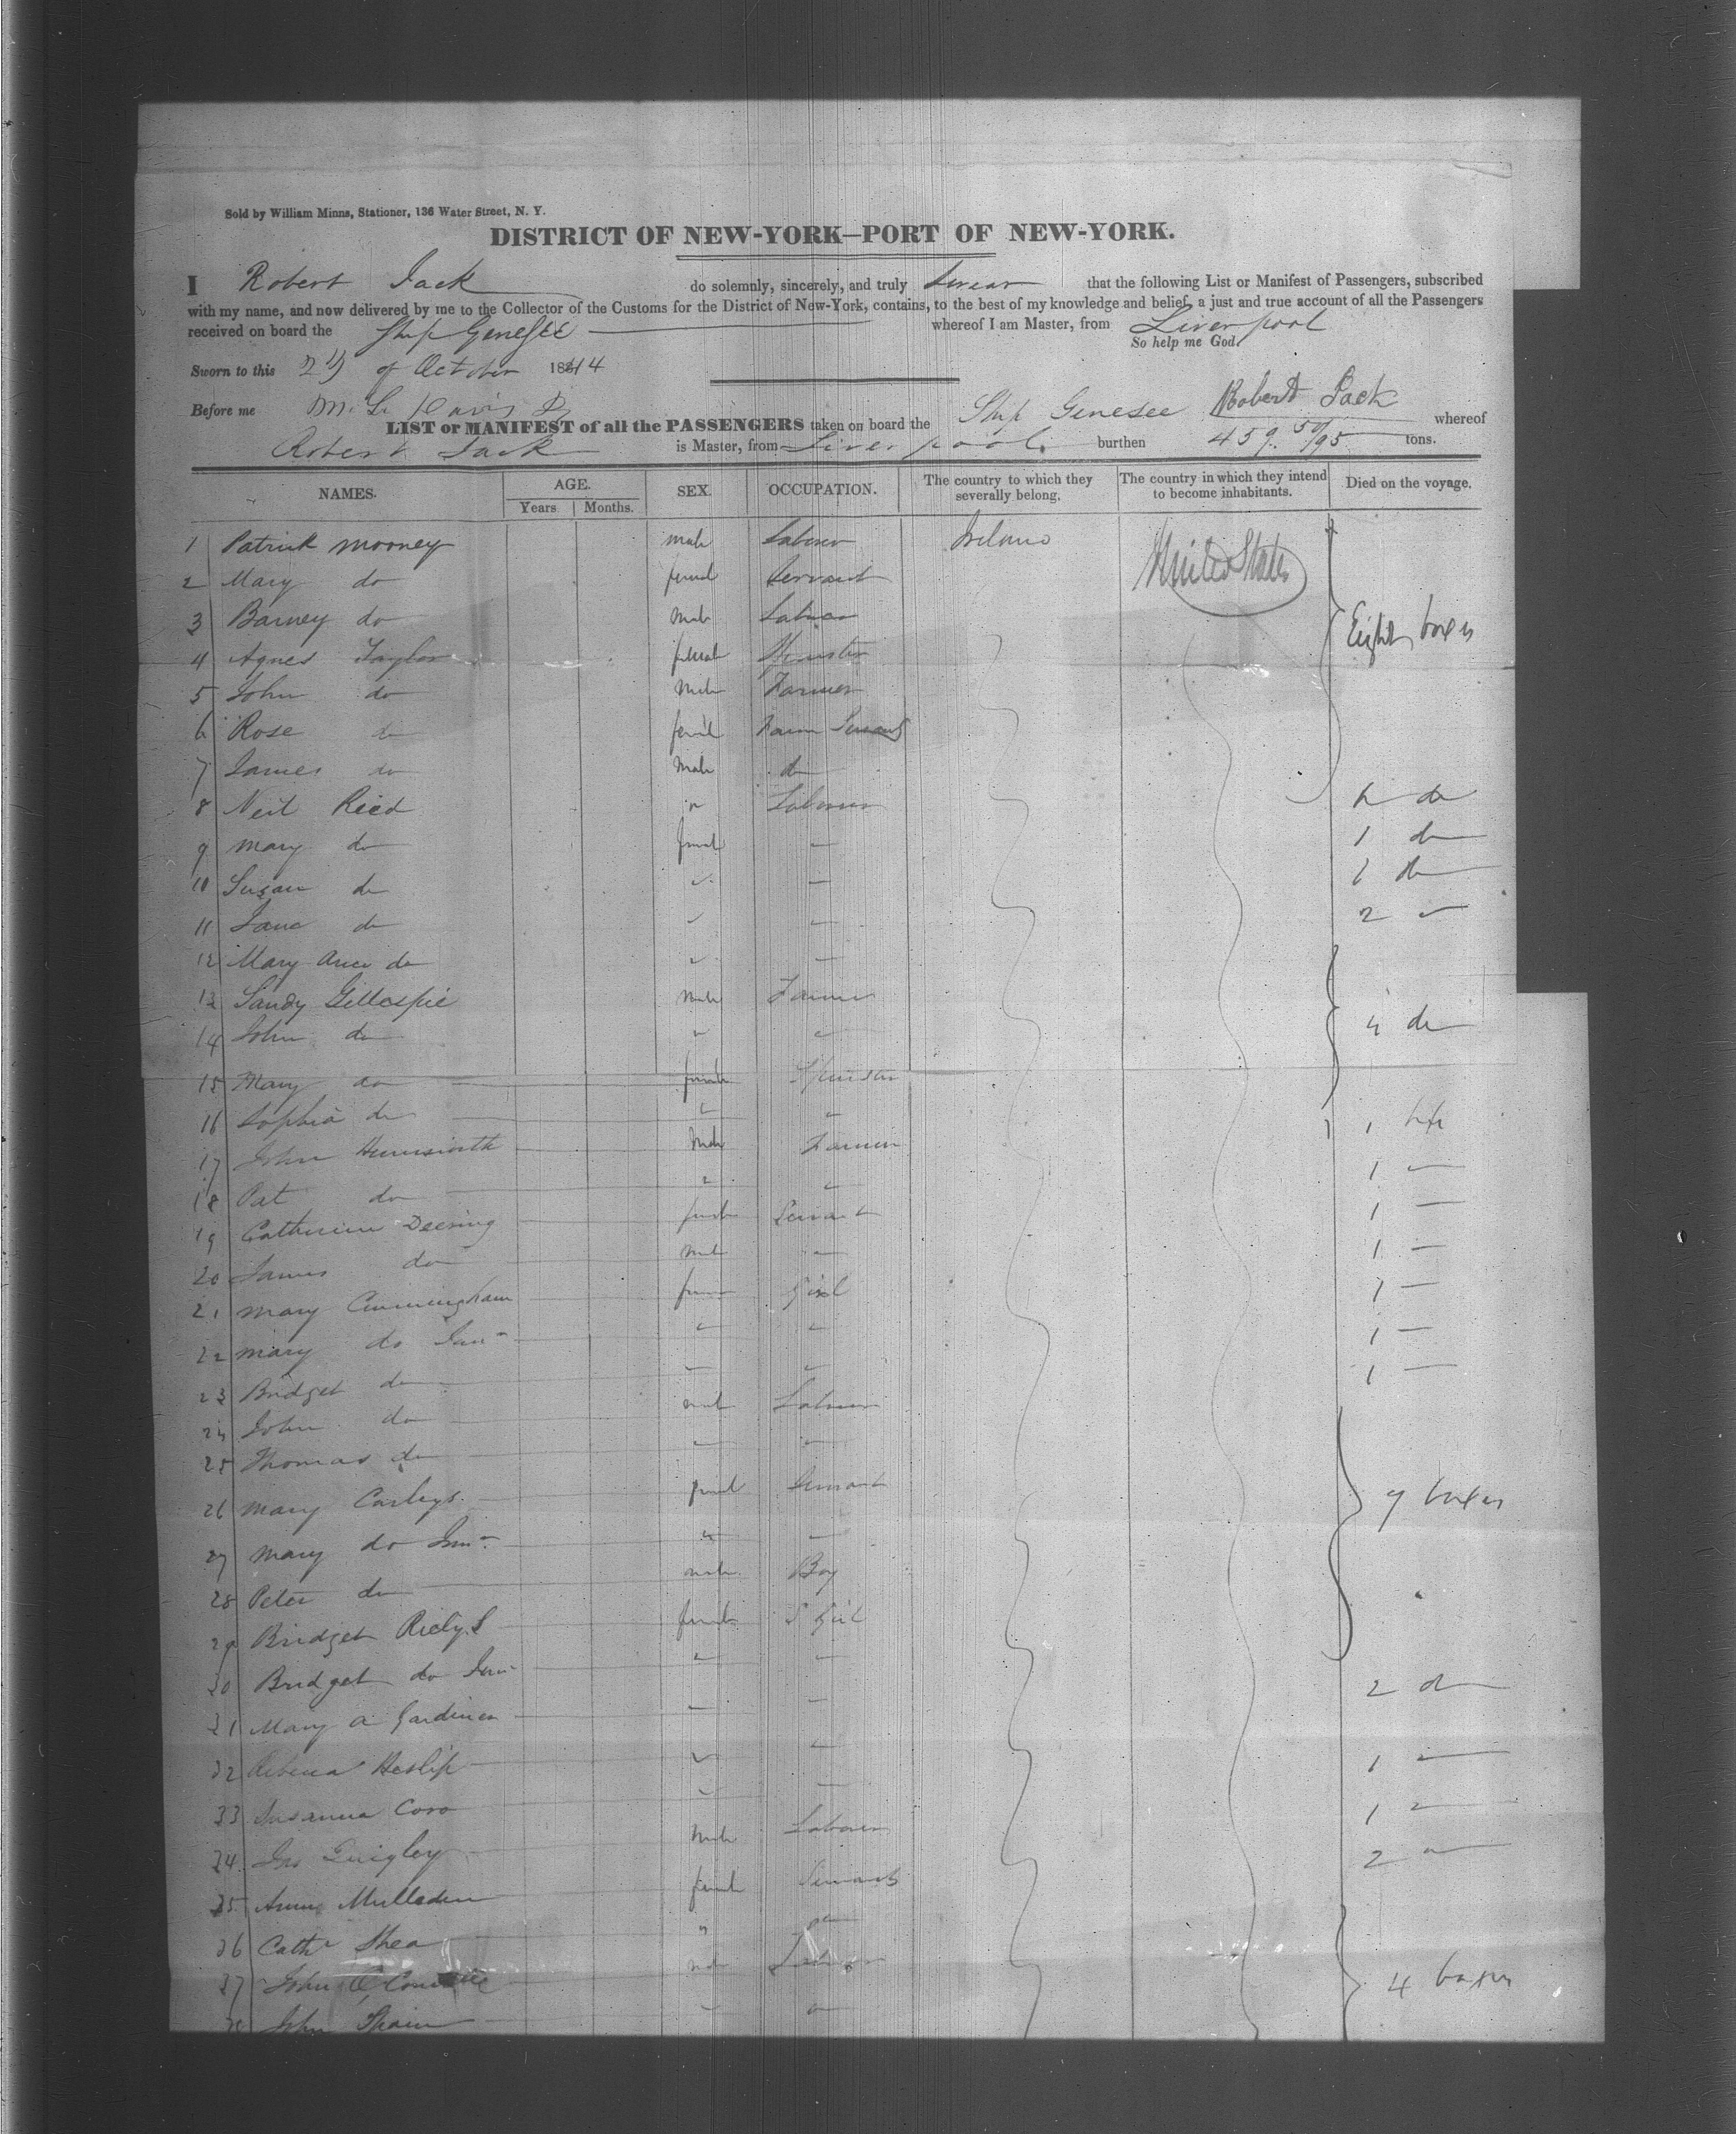 Sold by William Minns, Stationer, 136 Water Street, N. Y.
DISTRICT OF NEW-YORK—PORT OF NEW-YORK.
I Robert Jack do solemnly, sincerely, and truly swear that the following List or Manifest of Passengers, subscribed
with my name, and now delivered by me to the Collector of the Customs for the District of New-York, contains, to the best of my knowledge and belief, a just and true account of all the Passengers
received on board the Ship Genesee whereof I am Master, from Liverpool
So help me God.
Sworn to this of October 1844
Robert Jack
Before me M. L. Davis
LIST or MANIFEST of all the PASSENGERS taken on board the Ship Genesee whereof
Robert Jack is Master, from Liverpool burthen 459 50/95 tons.
NAMES. AGE. SEX. OCCUPATION. The country to which they severally belong. The country in which they intend to become inhabitants. Died on the voyage.
Years Months.
1 Patrick Mooney male Laborer Ireland United States
2 Mary do femal Servant
3 Barney do Male Laborer Eight boxes
4 Agnes Taylor female Spinster
5 John do Male Farmer
6 Rose do femal Farm Servant
7 James do Male do
8 Neil Reed " Laborer do
9 Mary do femal 1 do
10 Susan do 1 do
11 Jane do 2
12 Mary Ann do
13 Sandy Gillespie Male Farmer
14 John do 4 do
15 Mary do female Spinster
16 Sophia do 1
17 John Male Farmer 1
18 Pat do 1
19 Catherine Deering female Servant
20 James do Male 1
21 Mary Cunningham Girl 1
22 Mary do Junr 1
23 Bridget do 1
24 John do male Laborer
25 Thomas do
26 Mary femal Servant 7 boxes
27 Mary do Junr
28 Peter do male Boy
29 Bridget female Girl
30 Bridget do Junr 2 do
31 Mary A Gardiner
32 Heslip 1
33 Susanna 1
34 Jno Quigley Male Laborer 2
35 Anne female Servant
36 Cathe Shea " do
37 John Laborer 4 boxes
38 John Spain